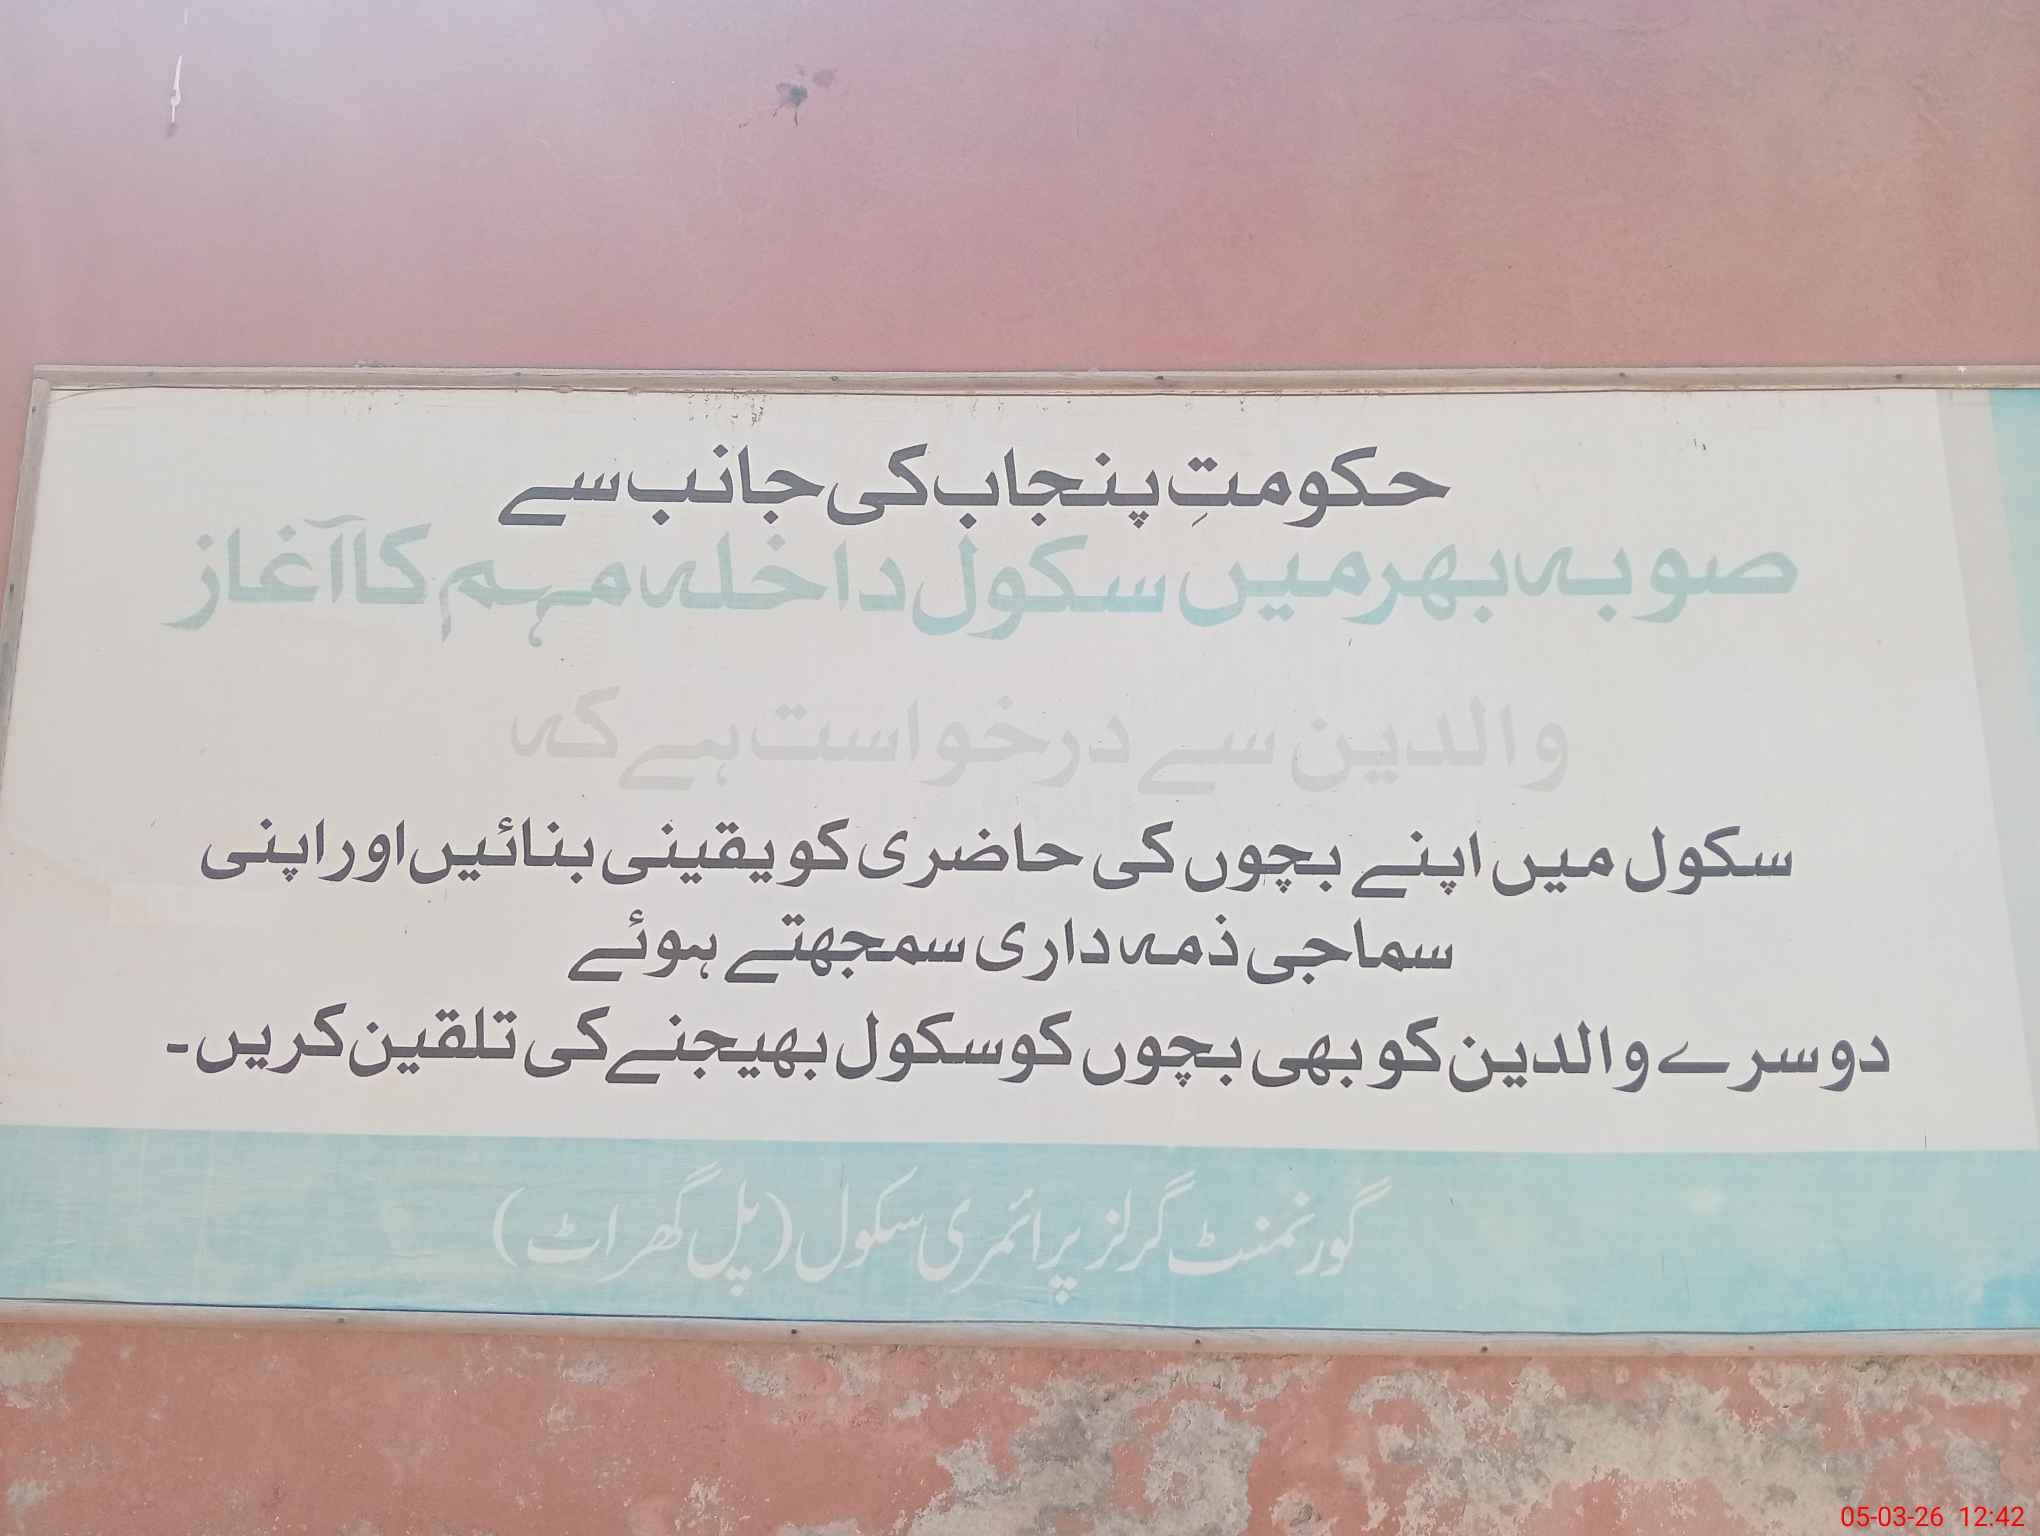 حکومتِ پنجاب کی جانب سے
صوبہ بھر میں سکول داخلہ مہم کا آغاز
والدین سے درخواست ہے کہ
سکول میں اپنے بچوں کی حاضری کو یقینی بنائیں اور اپنی
سماجی ذمہ داری سمجھتے ہوئے
دوسرے والدین کو بھی بچوں کو سکول بھیجنے کی تلقین کریں۔
گورنمنٹ گرلز پرائمری سکول (پل گھراٹ)
05-03-26 12:42